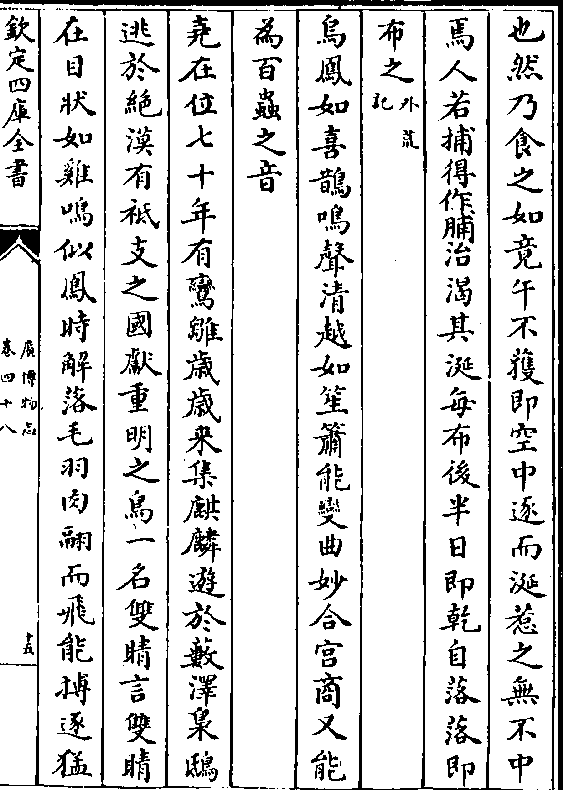 也然乃食之如竟午不獲即空中逐而涎惹之無不中
焉人若捕得作脯治渴其涎每布後半日即乾自落落即
布之外荒記
烏鳳如喜鵲鳴聲清越如笙簫能變曲妙合宮商又能
為百蟲之音
堯在位七十年有鸞雛歳歳來集麒麟遊於藪澤梟鴟
逃於絶漠有秪支之國獻重明之鳥一名雙睛言雙睛
在目狀如雞鳴似鳳時解落毛羽肉翮而飛能搏逐猛
欽定四庫全書
廣博物志
卷四十八
十五